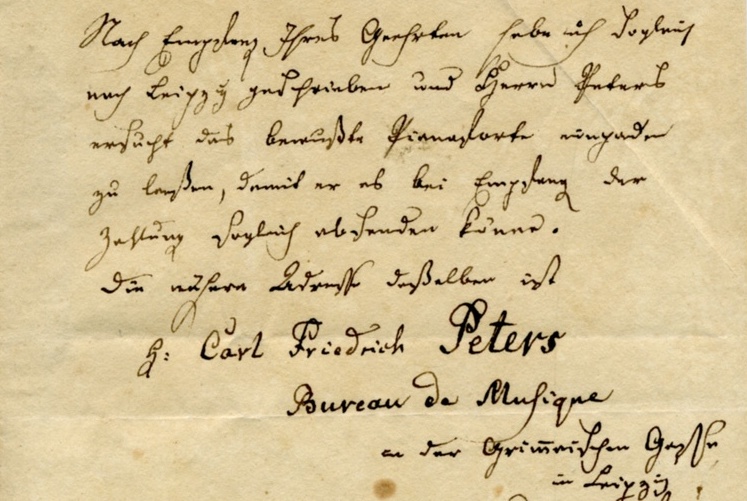 Nach Empfang Ihres Geehrten habe ich sogleich
nach Leipzig geschrieben und Herrn Peters
ersucht das bewußte Pianoforte einpacken
zu laßen, damit er es bei Empfang der
Zahlung sogleich absenden könne.
Die nähere Adresse deßelben ist
H: Carl Friedrich Peters
Bureau de Musique
in der Grim̅aischen Gasse
in Leipzig